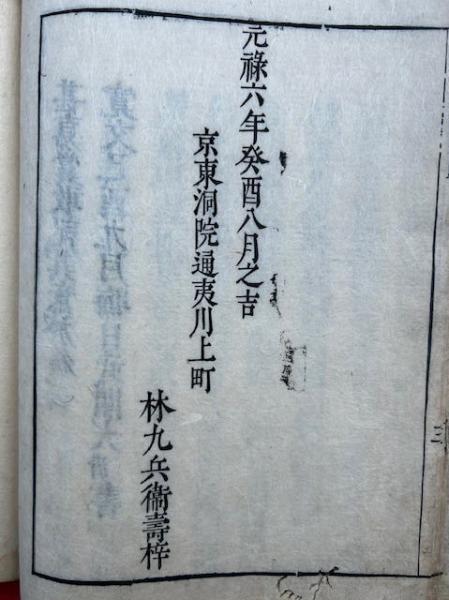 元祿六年癸酉八月之吉
京東洞院通夷川上町
林九兵衞壽梓
三